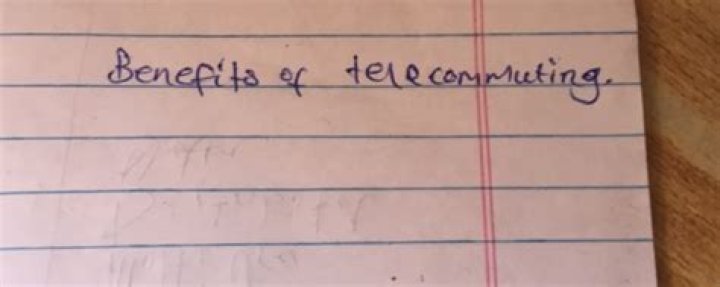 Benefits of telecommuting.